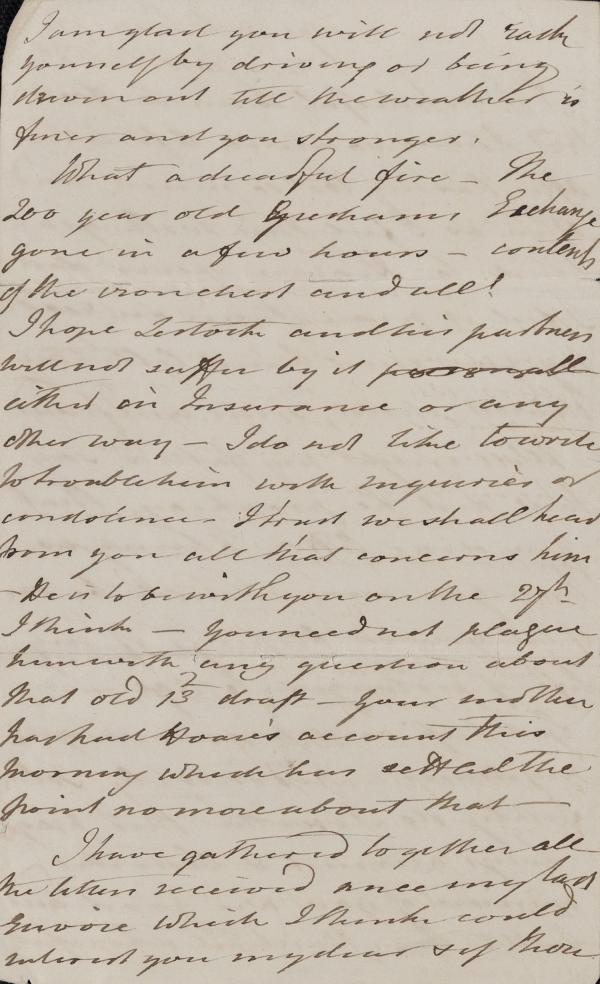 I am glad you will not rash
yourself by driving or being
driven out till the weather is
finer and you stronger.
What a dreadful fire – The
200 year old Greshams Exchange
gone in a few hours – contents
of the iron chest and all!
I hope Lestock and his partners
will not suffer by it
either in Insurance or any
other way – I do not like to write
to trouble him with inquiries or
condolence – I trust we shall hear
from you all that concerns him
– He is to be with you on the 27th
I think – You need not plague
him with any question about
that old 13 draft – Your mother
has had Hoare's account this
morning which has settled the
point no more about that –
I have gathered together all
the letters received since my last
envoie which I think could
interest you my dear & if there